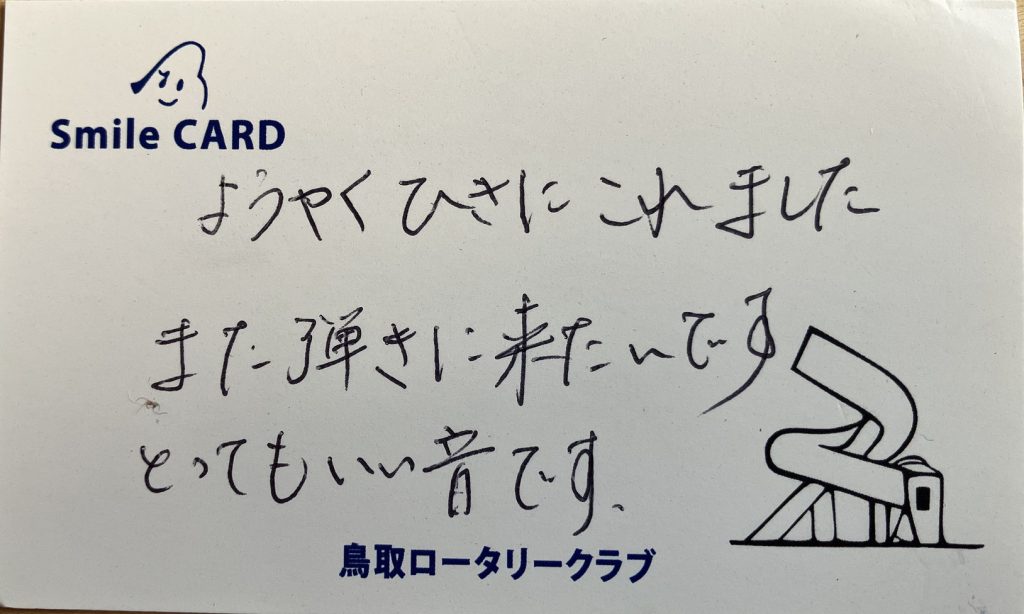 Smile CARD
ようやくひさにこれました
また弾きに来たいです
とってもいい音です、
鳥取ロータリークラブ